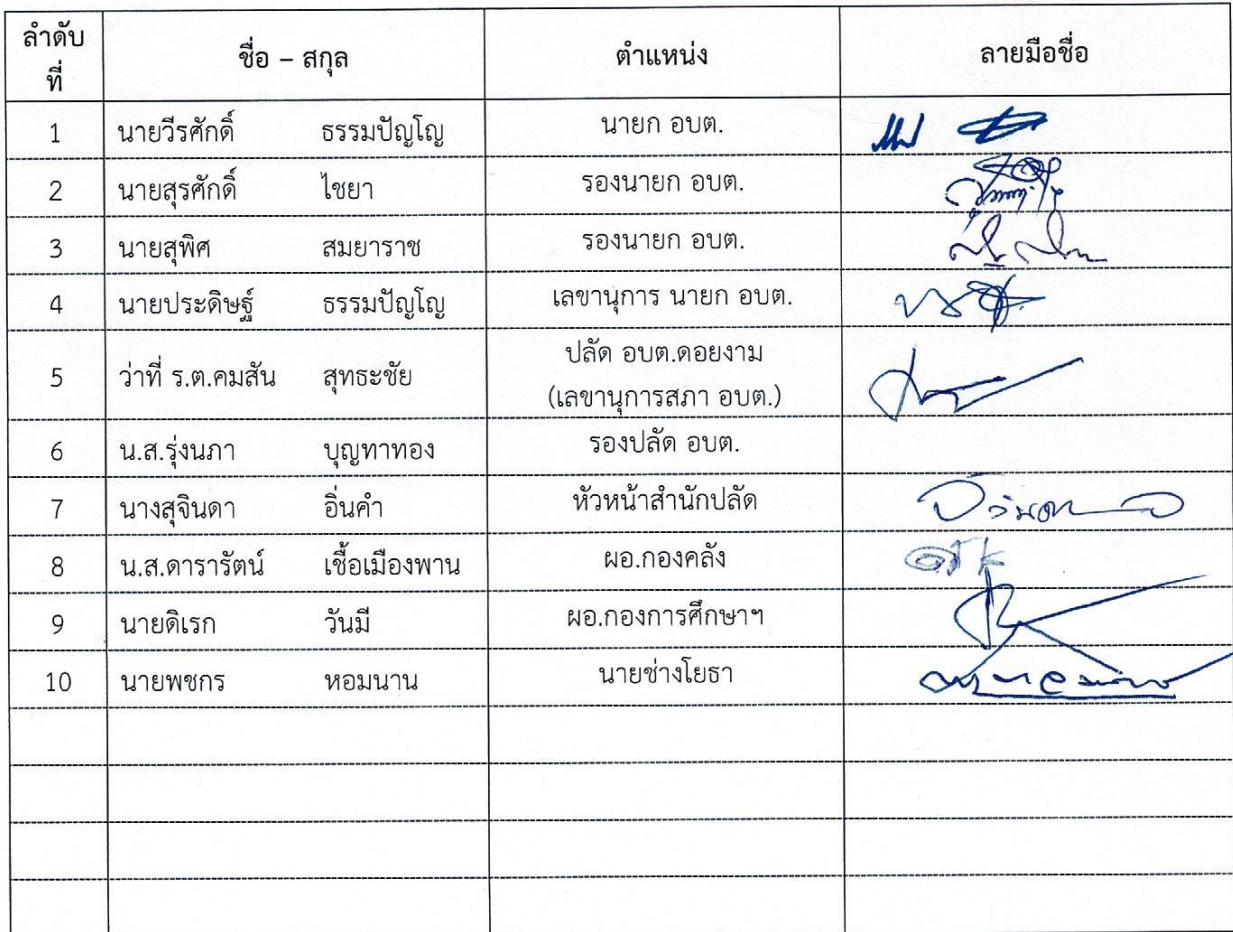 ลำดับที่ ชื่อ – สกุล ตำแหน่ง ลายมือชื่อ
1 นายวีรศักดิ์ ธรรมปัญโญ นายก อบต.
2 นายสุรศักดิ์ ไชยา รองนายก อบต.
3 นายสุพิศ สมยาราช รองนายก อบต.
4 นายประดิษฐ์ ธรรมปัญโญ เลขานุการ นายก อบต.
5 ว่าที่ ร.ต.คมสัน สุทธะชัย ปลัด อบต.ดอยงาม
(เลขานุการสภา อบต.)
6 น.ส.รุ่งนภา บุญทาทอง รองปลัด อบต.
7 นางสุจินดา อิ่นคำ หัวหน้าสำนักปลัด
8 น.ส.ดารารัตน์ เชื้อเมืองพาน ผอ.กองคลัง
9 นายดิเรก วันมี ผอ.กองการศึกษาฯ
10 นายพชกร หอมนาน นายช่างโยธา